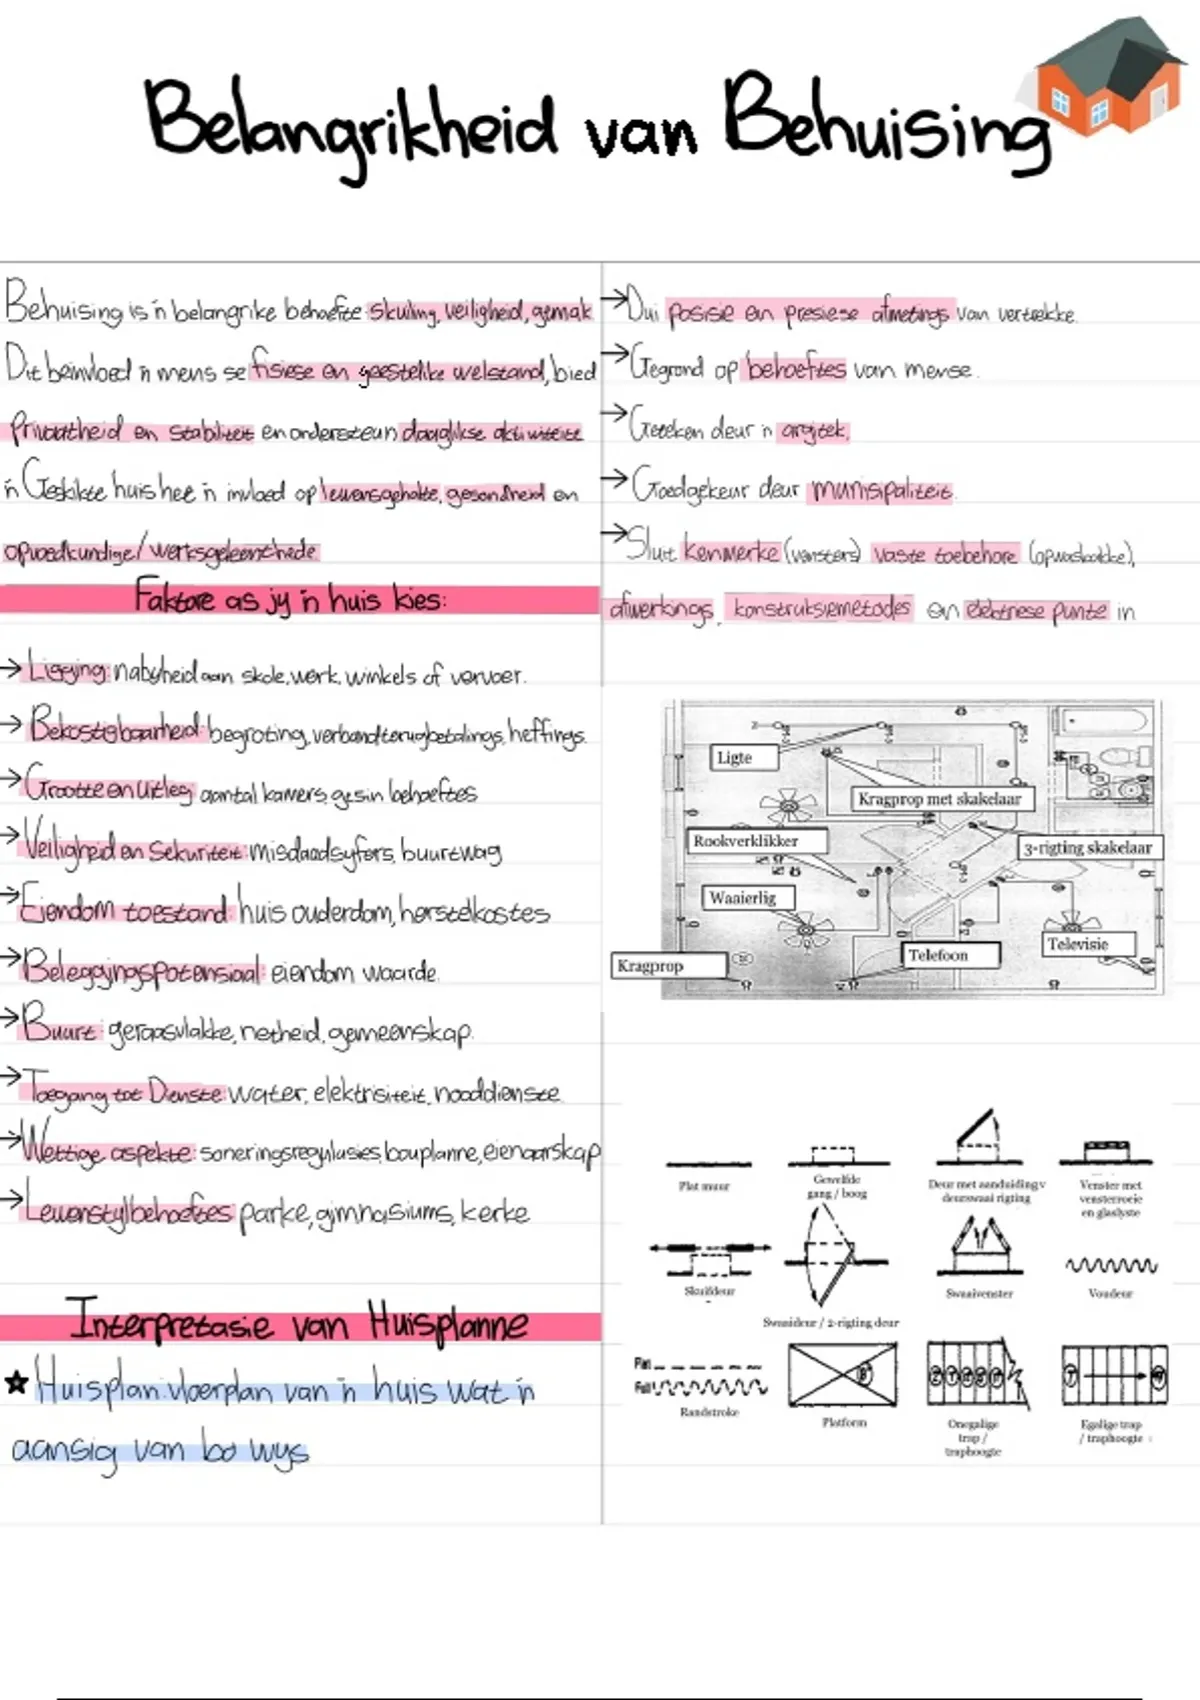 Belangrikheid van Behuising
Behuising is 'n belangrike behoefte: skuiling, veiligheid, gemak.
Dit beïnvloed 'n mens se fisiese en geestelike welstand, bied
Privaatheid en stabiliteit en ondersteun daaglikse aktiwiteite
'n Geskikte huis het 'n invloed op lewensgehalte, gesondheid en
opvoedkundige/ werksgeleenthede.
Faktore as jy 'n huis kies:
→ Ligging: nabyheid aan skole, werk, winkels of vervoer.
→ Bekostigbaarheid: begroting, verbandterugbetalings, heffings.
→ Grootte en Uitleg: aantal kamers, gesin behoeftes
→ Veiligheid en Sekuriteit: misdaadsyfers, buurtwag
→ Eiendom toestand: huis ouderdom, herstelkostes
→ Beleggingspotensiaal: eiendom waarde.
→ Buurt: geraasvlakke, netheid, gemeenskap.
→ Toegang tot Dienste: water, elektrisiteit, nooddienste
→ Wettige aspekte: soneringsregulasies, bouplanne, eienaarskap
→ Lewenstylbehoeftes: parke, gimnasiums, kerke
Interpretasie van Huisplanne
★ Huisplan: vloerplan van 'n huis wat 'n
aansig van bo wys
→ Dui posisie en presiese afmetings van vertrekke.
→ Gegrond op behoeftes van mense.
→ Geteken deur 'n argitek.
→ Goedgekeur deur munisipaliteit.
→ Sluit kenmerke (vensters) vaste toebehore (opwasbakke),
afwerkings, konstruksiemetodes en elektriese punte in
Ligte
Kragprop met skakelaar
Rookverklikker
3-rigting skakelaar
Waaierlig
Televisie
Telefoon
Kragprop
Plat muur
Gewelfde
gang / boog
Deur met aanduiding v
deurswaai rigting
Venster met
vensterroeie
en glaslyste
Skuifdeur
Swaaideur / 2-rigting deur
Swaaivenster
Voudeur
Randstroke
Platform
Onegalige
trap /
traphoogte
Egalige trap
/ traphoogte